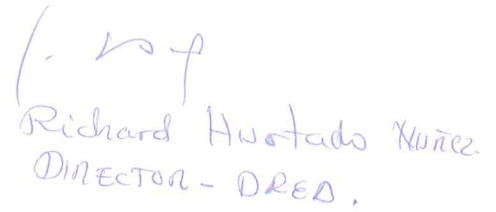 Richard Hurtado Nuñez
DIRECTOR - DRED.